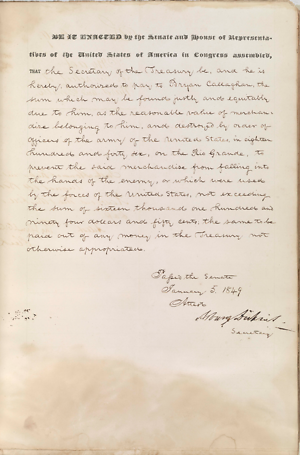 BE IT ENACTED by the Senate and House of Representa-
tives of the United States of America in Congress assembled,
THAT the Secretary of the Treasury be, and he is
hereby authorized to pay to Bryan Callaghan, the
sum which may be found justly and equitably
due to him, as the reasonable value of merchan-
dise belonging to him, and destroyed by order of
officers of the army of the United States in eighteen
hundred and forty six, on the Rio Grande, to
prevent the said merchandise from falling into
the hands of the enemy, or which were used
by the forces of the United States, not exceeding
the sum of sixteen thousand one hundred and
ninety four dollars and fifty cents, the same to be
paid out of any money in the Treasury not
otherwise appropriated.
Passed the Senate
January 5, 1849
Attest
Asbury Dickins
Secretary